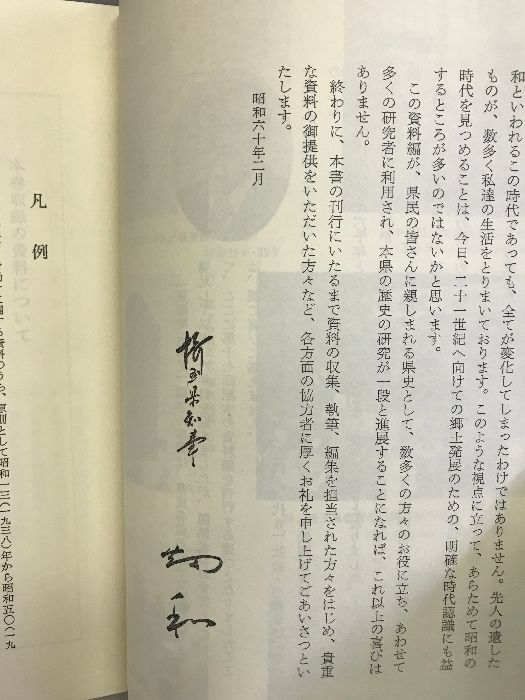 和といわれるこの時代であっても、全てが変化してしまったわけではありません。先人の遺した
ものが、数多く私達の生活をとりまいております。このような視点に立って、あらためて昭和の
時代を見つめることは、今日、二十一世紀へ向けての郷土発展のための、明確な時代認識にも益
するところが多いのではないかと思います。
この資料編が、県民の皆さんに親しまれる県史として、数多くの方々のお役に立ち、あわせて
多くの研究者に利用され、本県の歴史の研究が一段と進展することになれば、これ以上の喜びは
ありません。
終わりに、本書の刊行にいたるまで資料の収集、執筆、編集を担当された方々をはじめ、貴重
な資料の御提供をいただいた方々など、各方面の協力者に厚くお礼を申し上げてごあいさつとい
たします。
昭和六十年二月
県知事
和
凡例
資料のうち、原則として昭和一三(一九三八)年から昭和五〇(一九